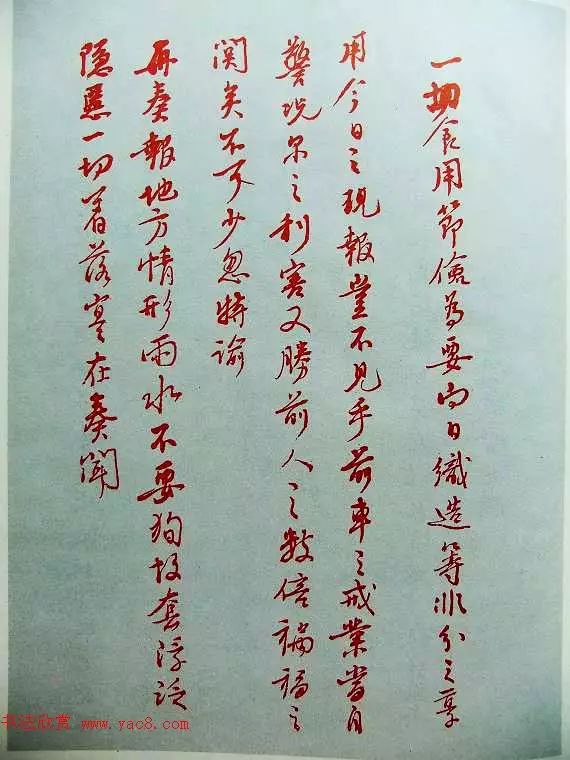 一切食用節儉為要向日織造等非分之享
用今日之現報豈不見乎前車之戒業當自
警况尔之利害又勝前人之数倍禍福之
関矣不可少忽特諭
再奏報地方情形雨水不要狥故套浮泛
隐匿一切着落寔在奏聞
书法欣赏 www.yac8.com